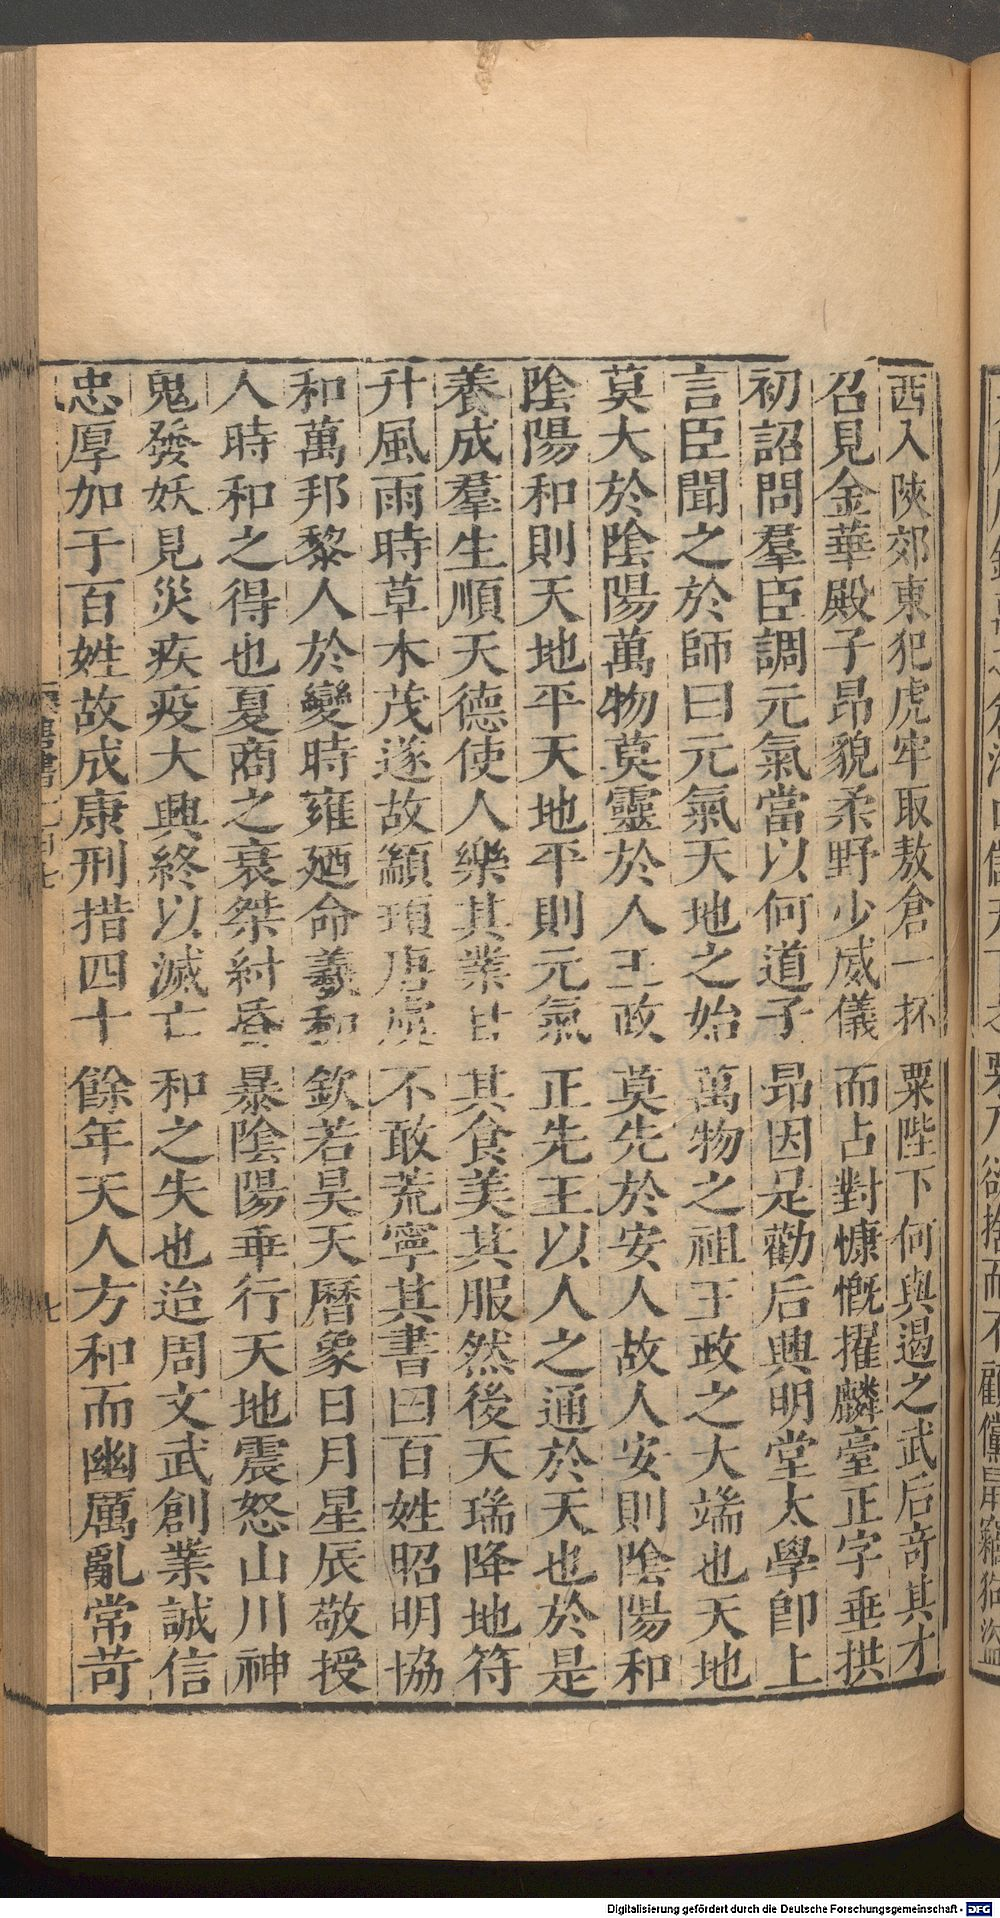 西入陝郊東犯虎牢取敖倉一抔粟陛下何與遏之武后奇其才
召見金華殿子昂貌柔野少威儀而占對慷慨擢麟臺正字垂拱
初詔問羣臣調元氣當以何道子昂因是勸后興明堂太學卽上
言臣聞之於師曰元氣天地之始萬物之祖王政之大端也天地
莫大於陰陽萬物莫靈於人王政莫先於安人故人安則陰陽和
陰陽和則天地平天地平則元氣正先王以人之通於天也於是
養成羣生順天德使人樂其業甘其食美其服然後天瑞降地符
升風雨時草木茂遂故顓頊唐虞不敢荒寧其書曰百姓昭明協
和萬邦黎人於變時雍廼命羲和欽若昊天曆象日月星辰敬授
人時和之得也夏商之衰桀紂昏暴陰陽乖行天地震怒山川神
鬼發妖見災疾疫大興終以滅亡和之失也迨周文武創業誠信
忠厚加于百姓故成康刑措四十餘年天人方和而幽厲亂常苛
七
Digitalisierung gefördert durch die Deutsche Forschungsgemeinschaft - DFG